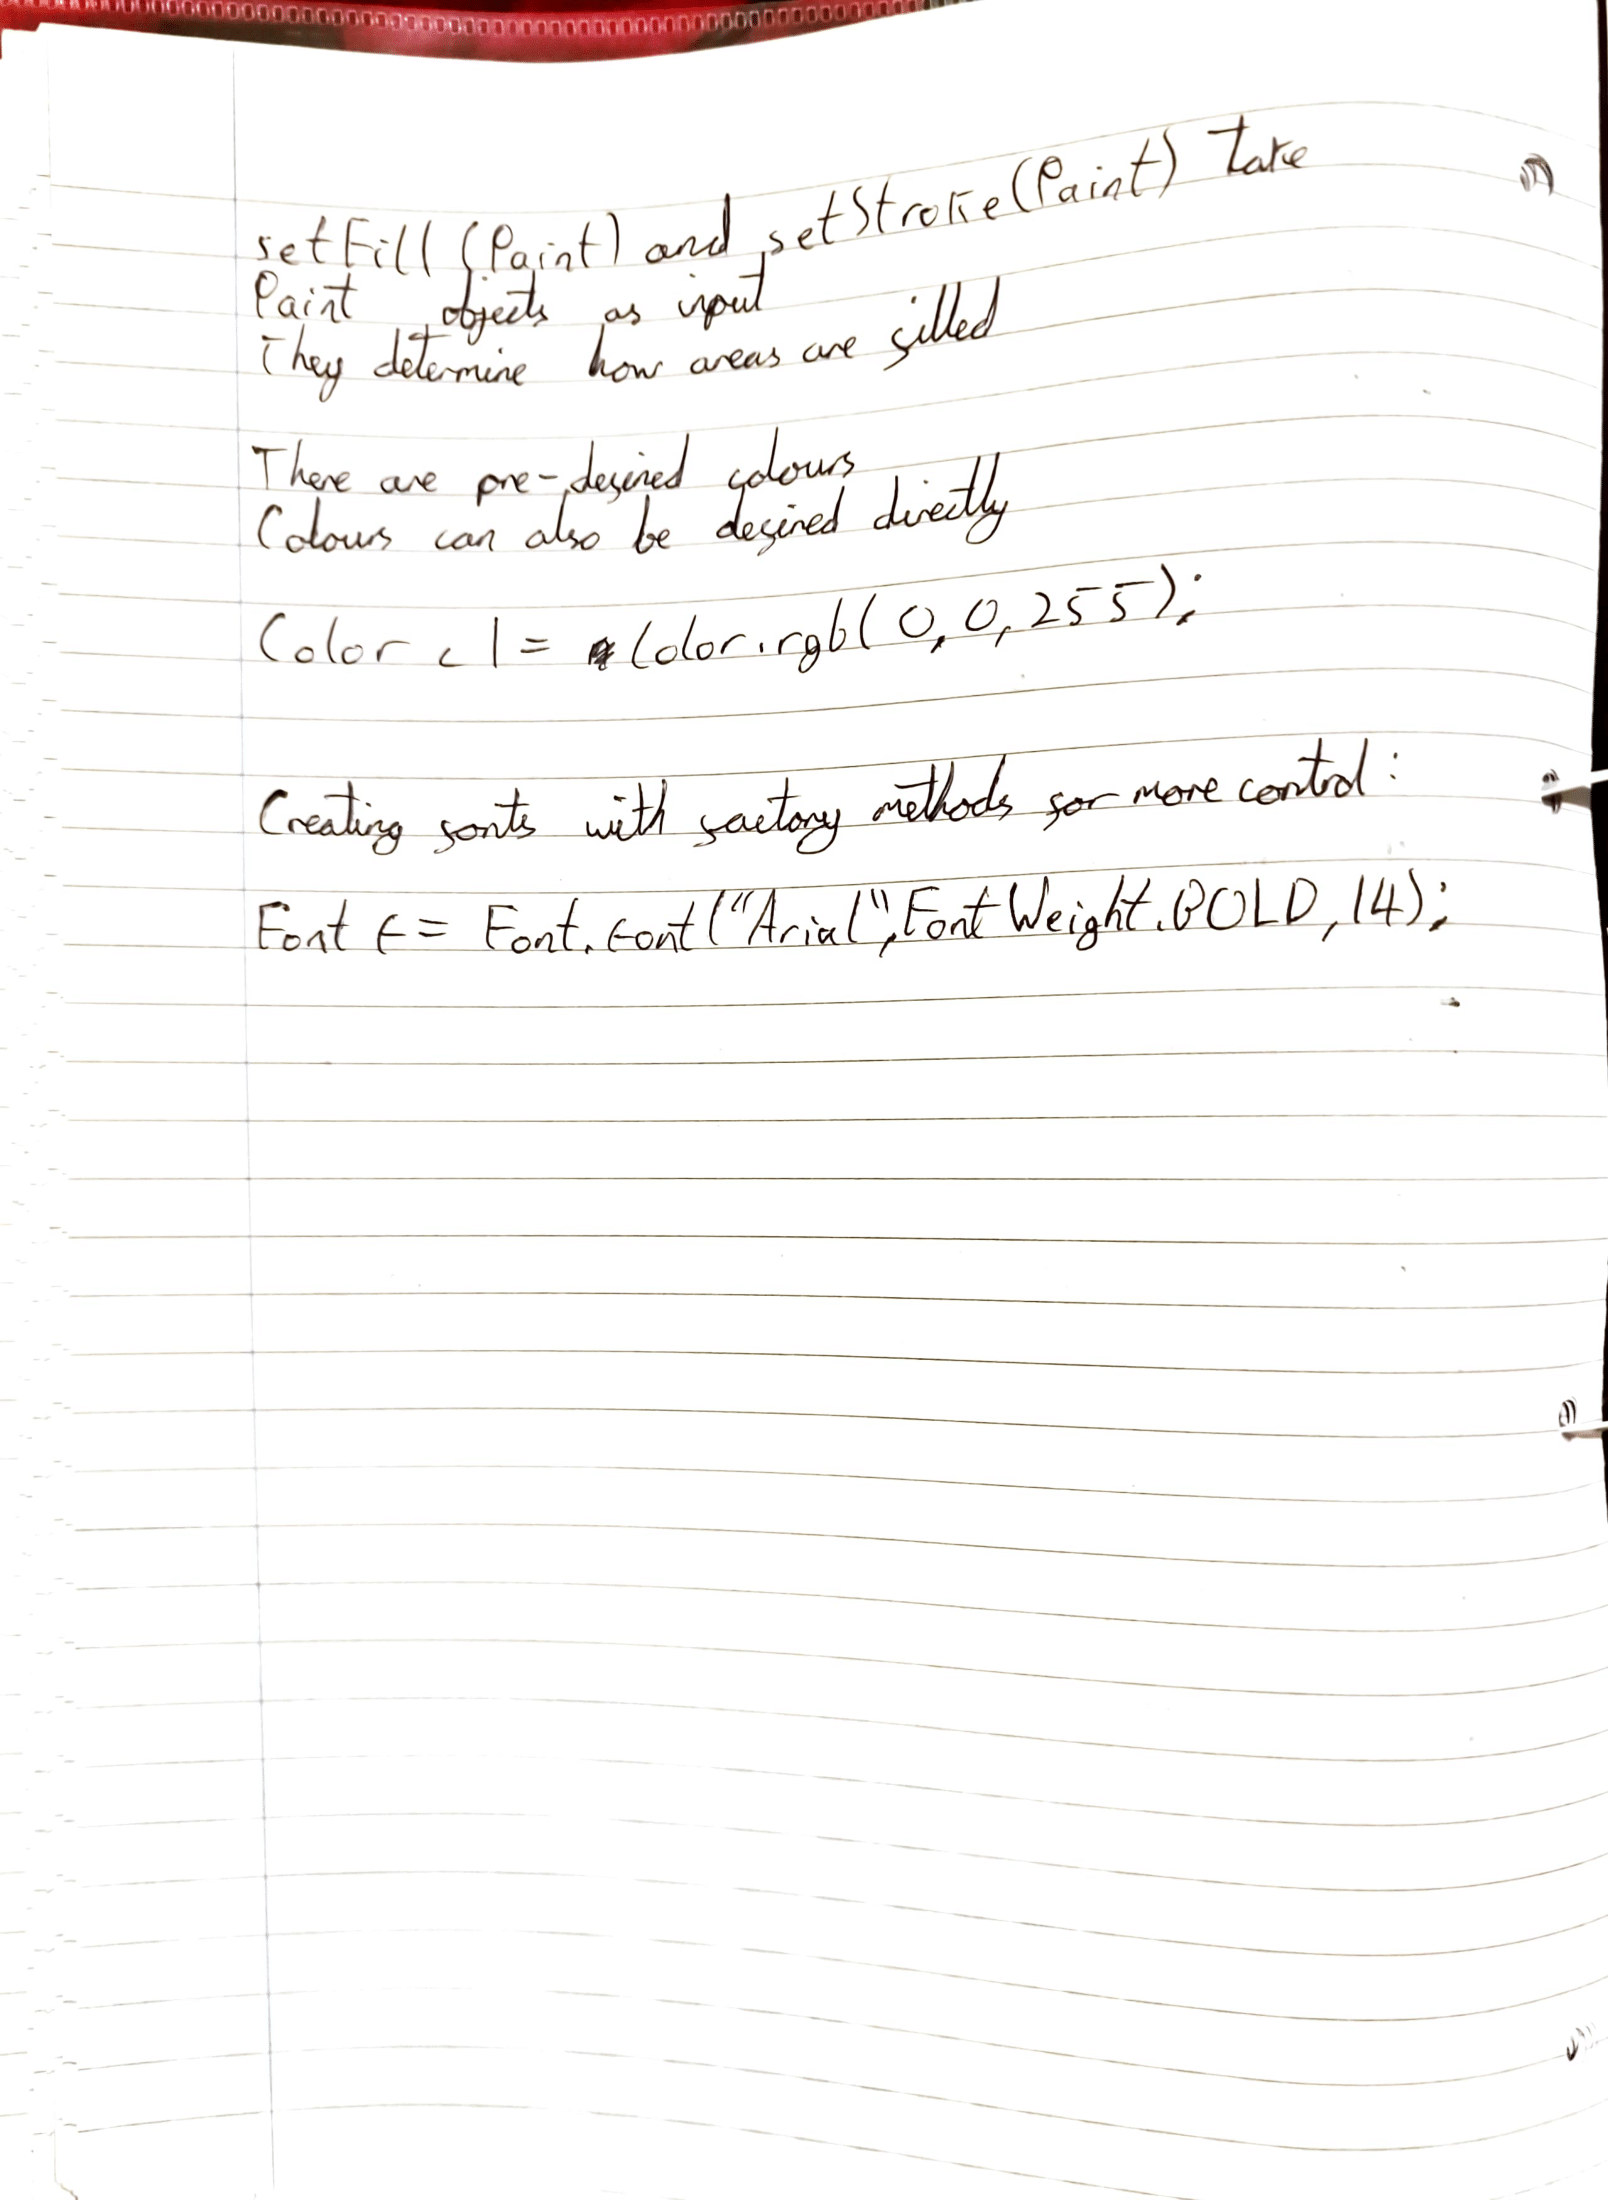 setFill (Paint) and setStroke(Paint) take
Paint objects as input
They determine how areas are filled
There are pre-defined colours
Colours can also be defined directly
Color c1 = Color.rgb(0,0,255);
Creating fonts with factory methods for more control:
Font f = Font.font("Arial",FontWeight.BOLD,14);